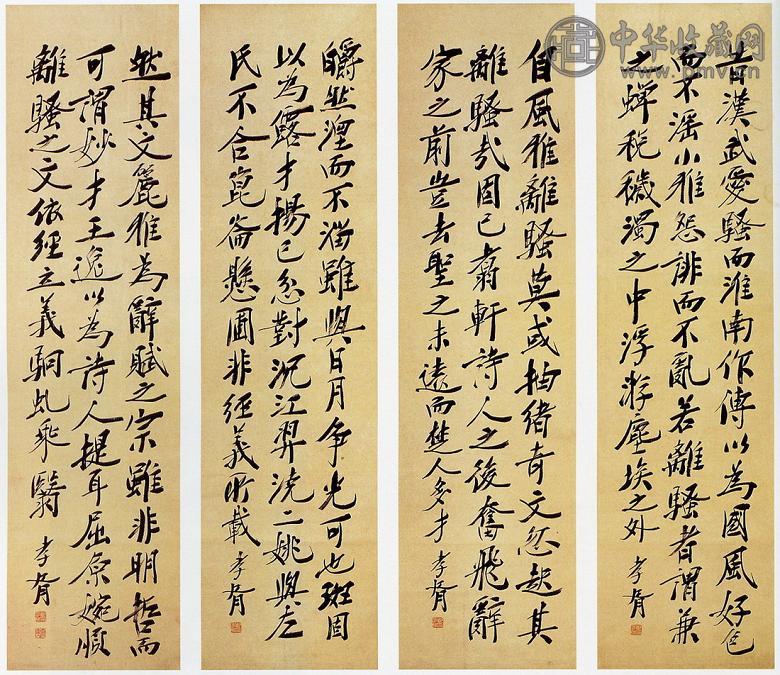 昔漢武愛騷而淮南作傳以為國風好色
而不淫小雅怨誹而不亂若離騷者謂兼
之蟬稅穢濁之中浮游塵埃之外 孝胥
自風雅離騷莫或抽緒奇文忽起其
離騷哉固已翥軒詩人之後奮飛辭
家之前豈去聖之未遠而楚人多才 孝胥
皭然涅而不淄雖與日月爭光可也班固
以為露才揚己忿對沉江羿澆二姚與左
氏不合崑崙懸圃非經義所載 孝胥
然其文麗雅為辭賦之宗雖非明哲而
可謂妙才王逸以為詩人提耳屈原婉順
離騷之文依經立義駟虬乘翳 孝胥
中华收藏网
www.pmv.cn